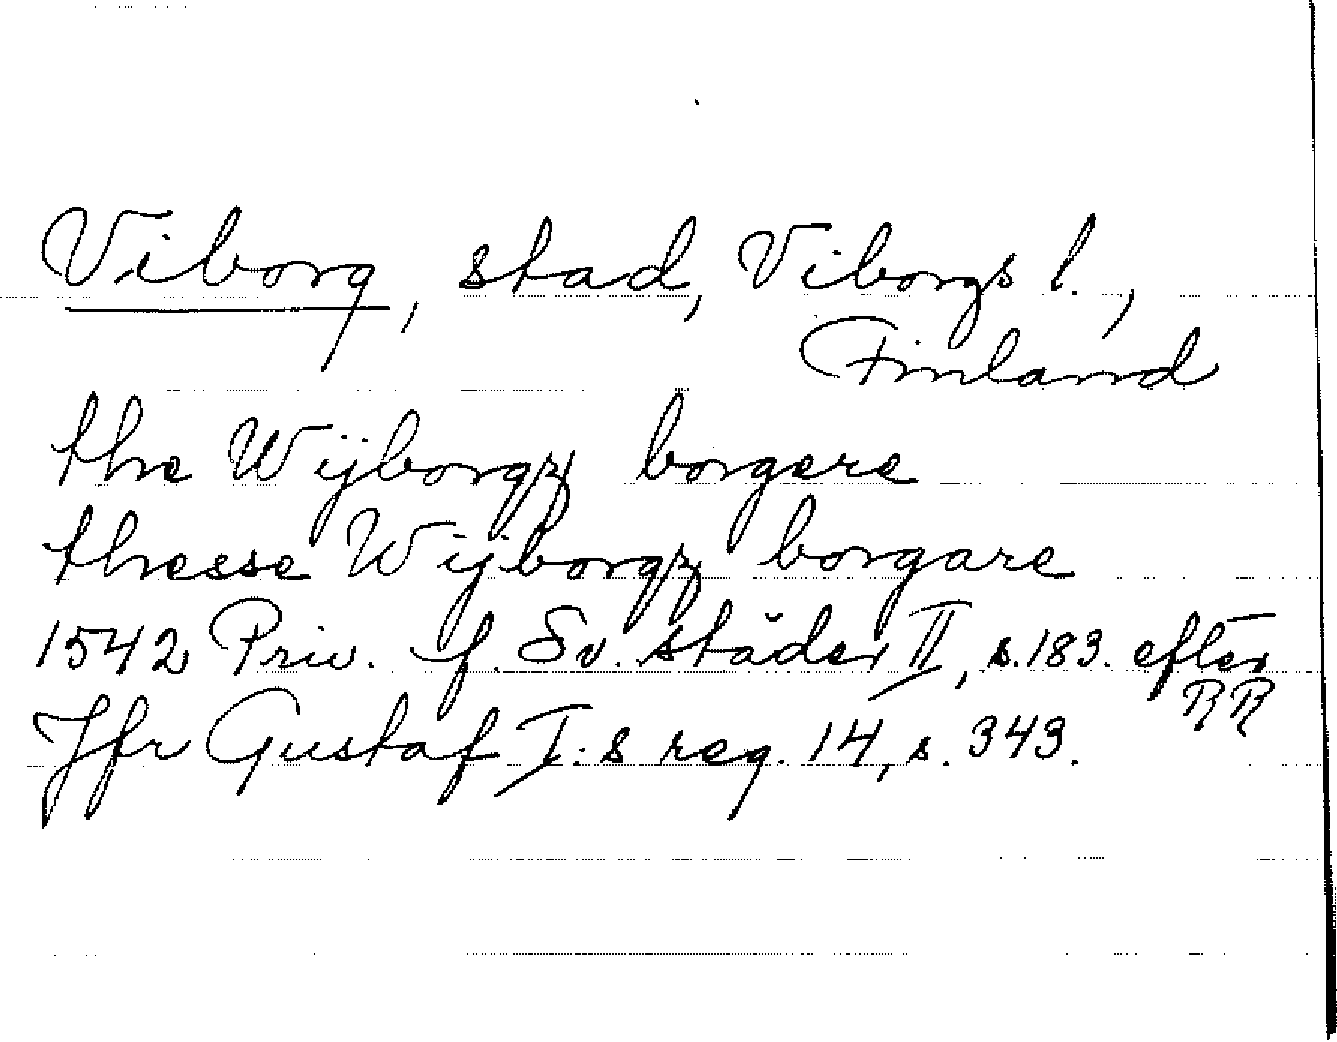 Viborg, stad, Viborgs l.,
Finland
the Wijborgz borgere
thesse Wijborgz borgare
1542 Priv. f. Sv. städer II, s. 183. efter
RR
Jfr Gustaf I:s reg. 14, s. 343.